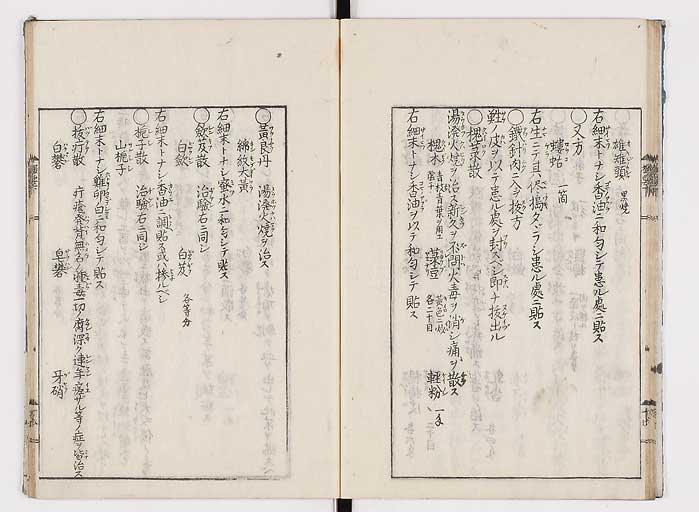 雄雉頭 黒焼
右細末トナシ香油ニ和匀シテ患ル處ニ貼ス
○又方
螻蛄 一箇
右生ニテ且ハ
○鐵針肉ニ入ヲ抜方
ノ皮ヲ以テ患ル處ヲ封スベシ即チ抜出ル
○槐葉散
湯溌火燒ヲ治ス新久ヲ不問火毒ヲ消シ痛ヲ散ス
輕粉
右細末トナシ香油ヲ以テ和匀シテ貼ス
○黃良丹 湯溌火燒ヲ治ス
綿紋大黃
右細末トナシ蜜水ニ和匀シテ貼ス
○歛芨散 治驗右ニ同シ
白歛 白芨 各等分
右細末トナシ香油ニ調貼ス或ハ摻ルベシ
○梔子散 治驗右ニ同シ
山梔子
右細末トナシ雞卵白ニ和匀シテ貼ス
○抜疔散 疔瘡發背無名ノ腫毒一切ノ瘡深ク連年瘥ザル等ノ症ヲ皆治ス
白礬 皂礬 牙硝